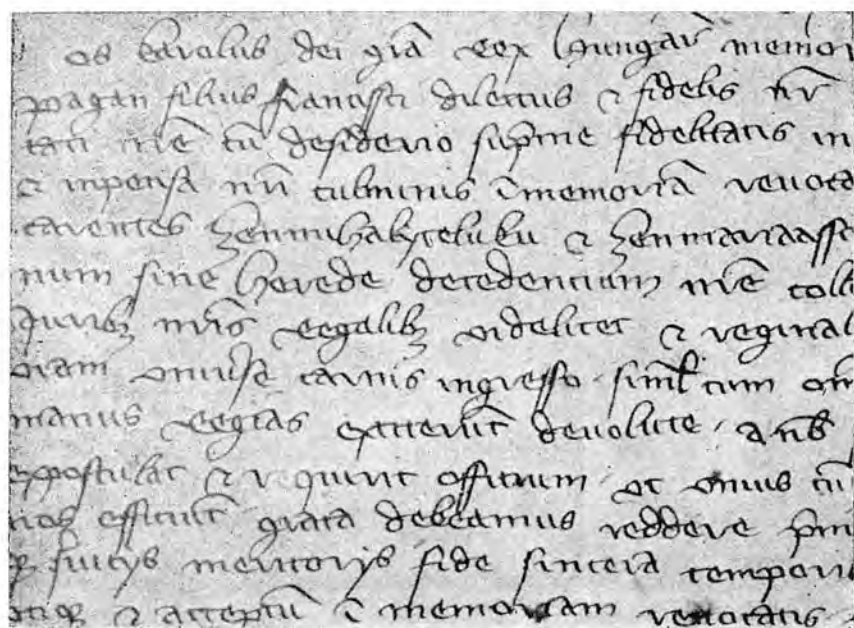 os karolus dei grã Rex hungar̃ memor
pagan filius francissci dilectus ⁊ fidelis nr̃
tati nr̃e cũ desiderio sup̃me fidelitatis in
⁊ inpensa nr̃i culminis ĩ memoriã revoca
carentes zenmihalteluku ⁊ zenmariaassa
num sine herede decedencium nr̃e colla
Juribȝ nr̃is Regalibȝ videlicet ⁊ reginal
viam uniṽse carnis ingresso siml̃ cum om̃
manus Regias extterũt devolute a nob̃
expostulat ⁊ requirit officium ut unius cũ
nob̃ efficiũt grata debeamus reddere p̃mi
s̃uicijs meritorijs fide sincera tempori
⁊ acceptũ ĩ memoriam revocatis